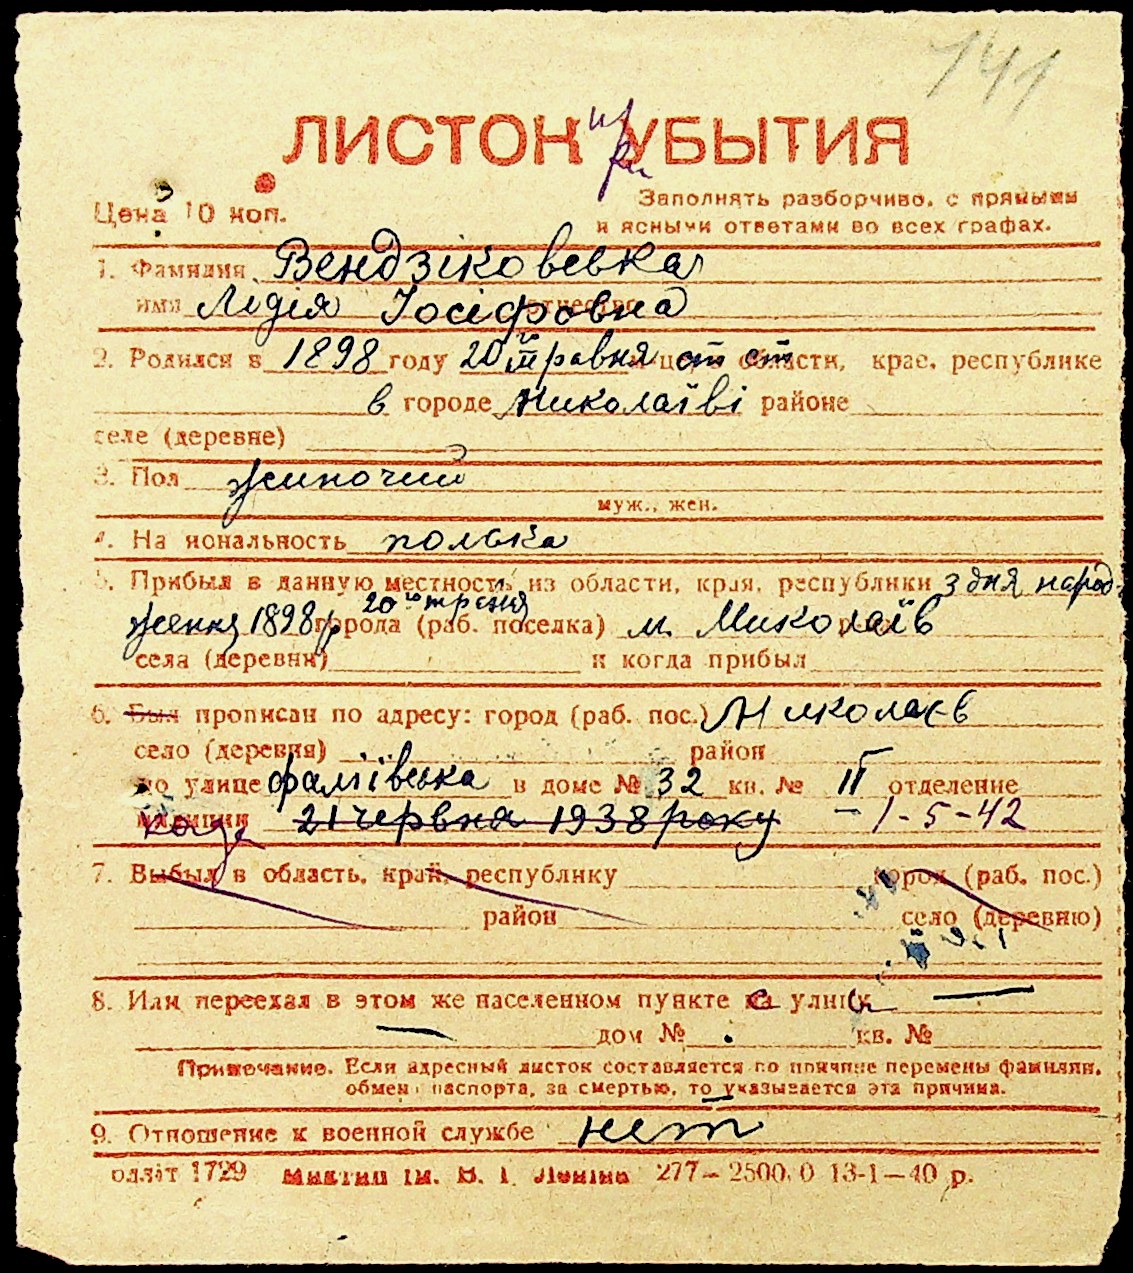 141
ЛИСТОК УБЫТИЯ
Цена 10 коп.
Заполнять разборчиво, с прямыми
и ясными ответами во всех графах.
1. Фамилия Вендзіковська
имя Лідія Іосіфовна отчество
2. Родился в 1898 году 20го травня ст ст области, крае, республике
в городе Николаїві районе
селе (деревне)
3. Пол жиночий
муж., жен.
4. Национальность полька
5. Прибыл в данную местность из области, края, республики з дня народ-
ження 1898 р 20го травня города (раб. поселка) м. Миколаїв
села (деревни) и когда прибыл
6. Был прописан по адресу: город (раб. пос.) Николаєв
село (деревня) район
по улице фаліївська в доме № 32 кв. № II отделение
милиции 21 червня 1938 року – 1-5-42
7. Выбыл в область, край, республику город (раб. пос.)
район село (деревню)
8. Или переехал в этом же населенном пункте на улицу —
— дом № кв. №
Примечание. Если адресный листок составляется по причине перемены фамилии,
обмен паспорта, за смертью, то указывается эта причина.
9. Отношение к военной службе нет
1729 ім. В. І. Леніна 277—2500.0 13-1—40 р.